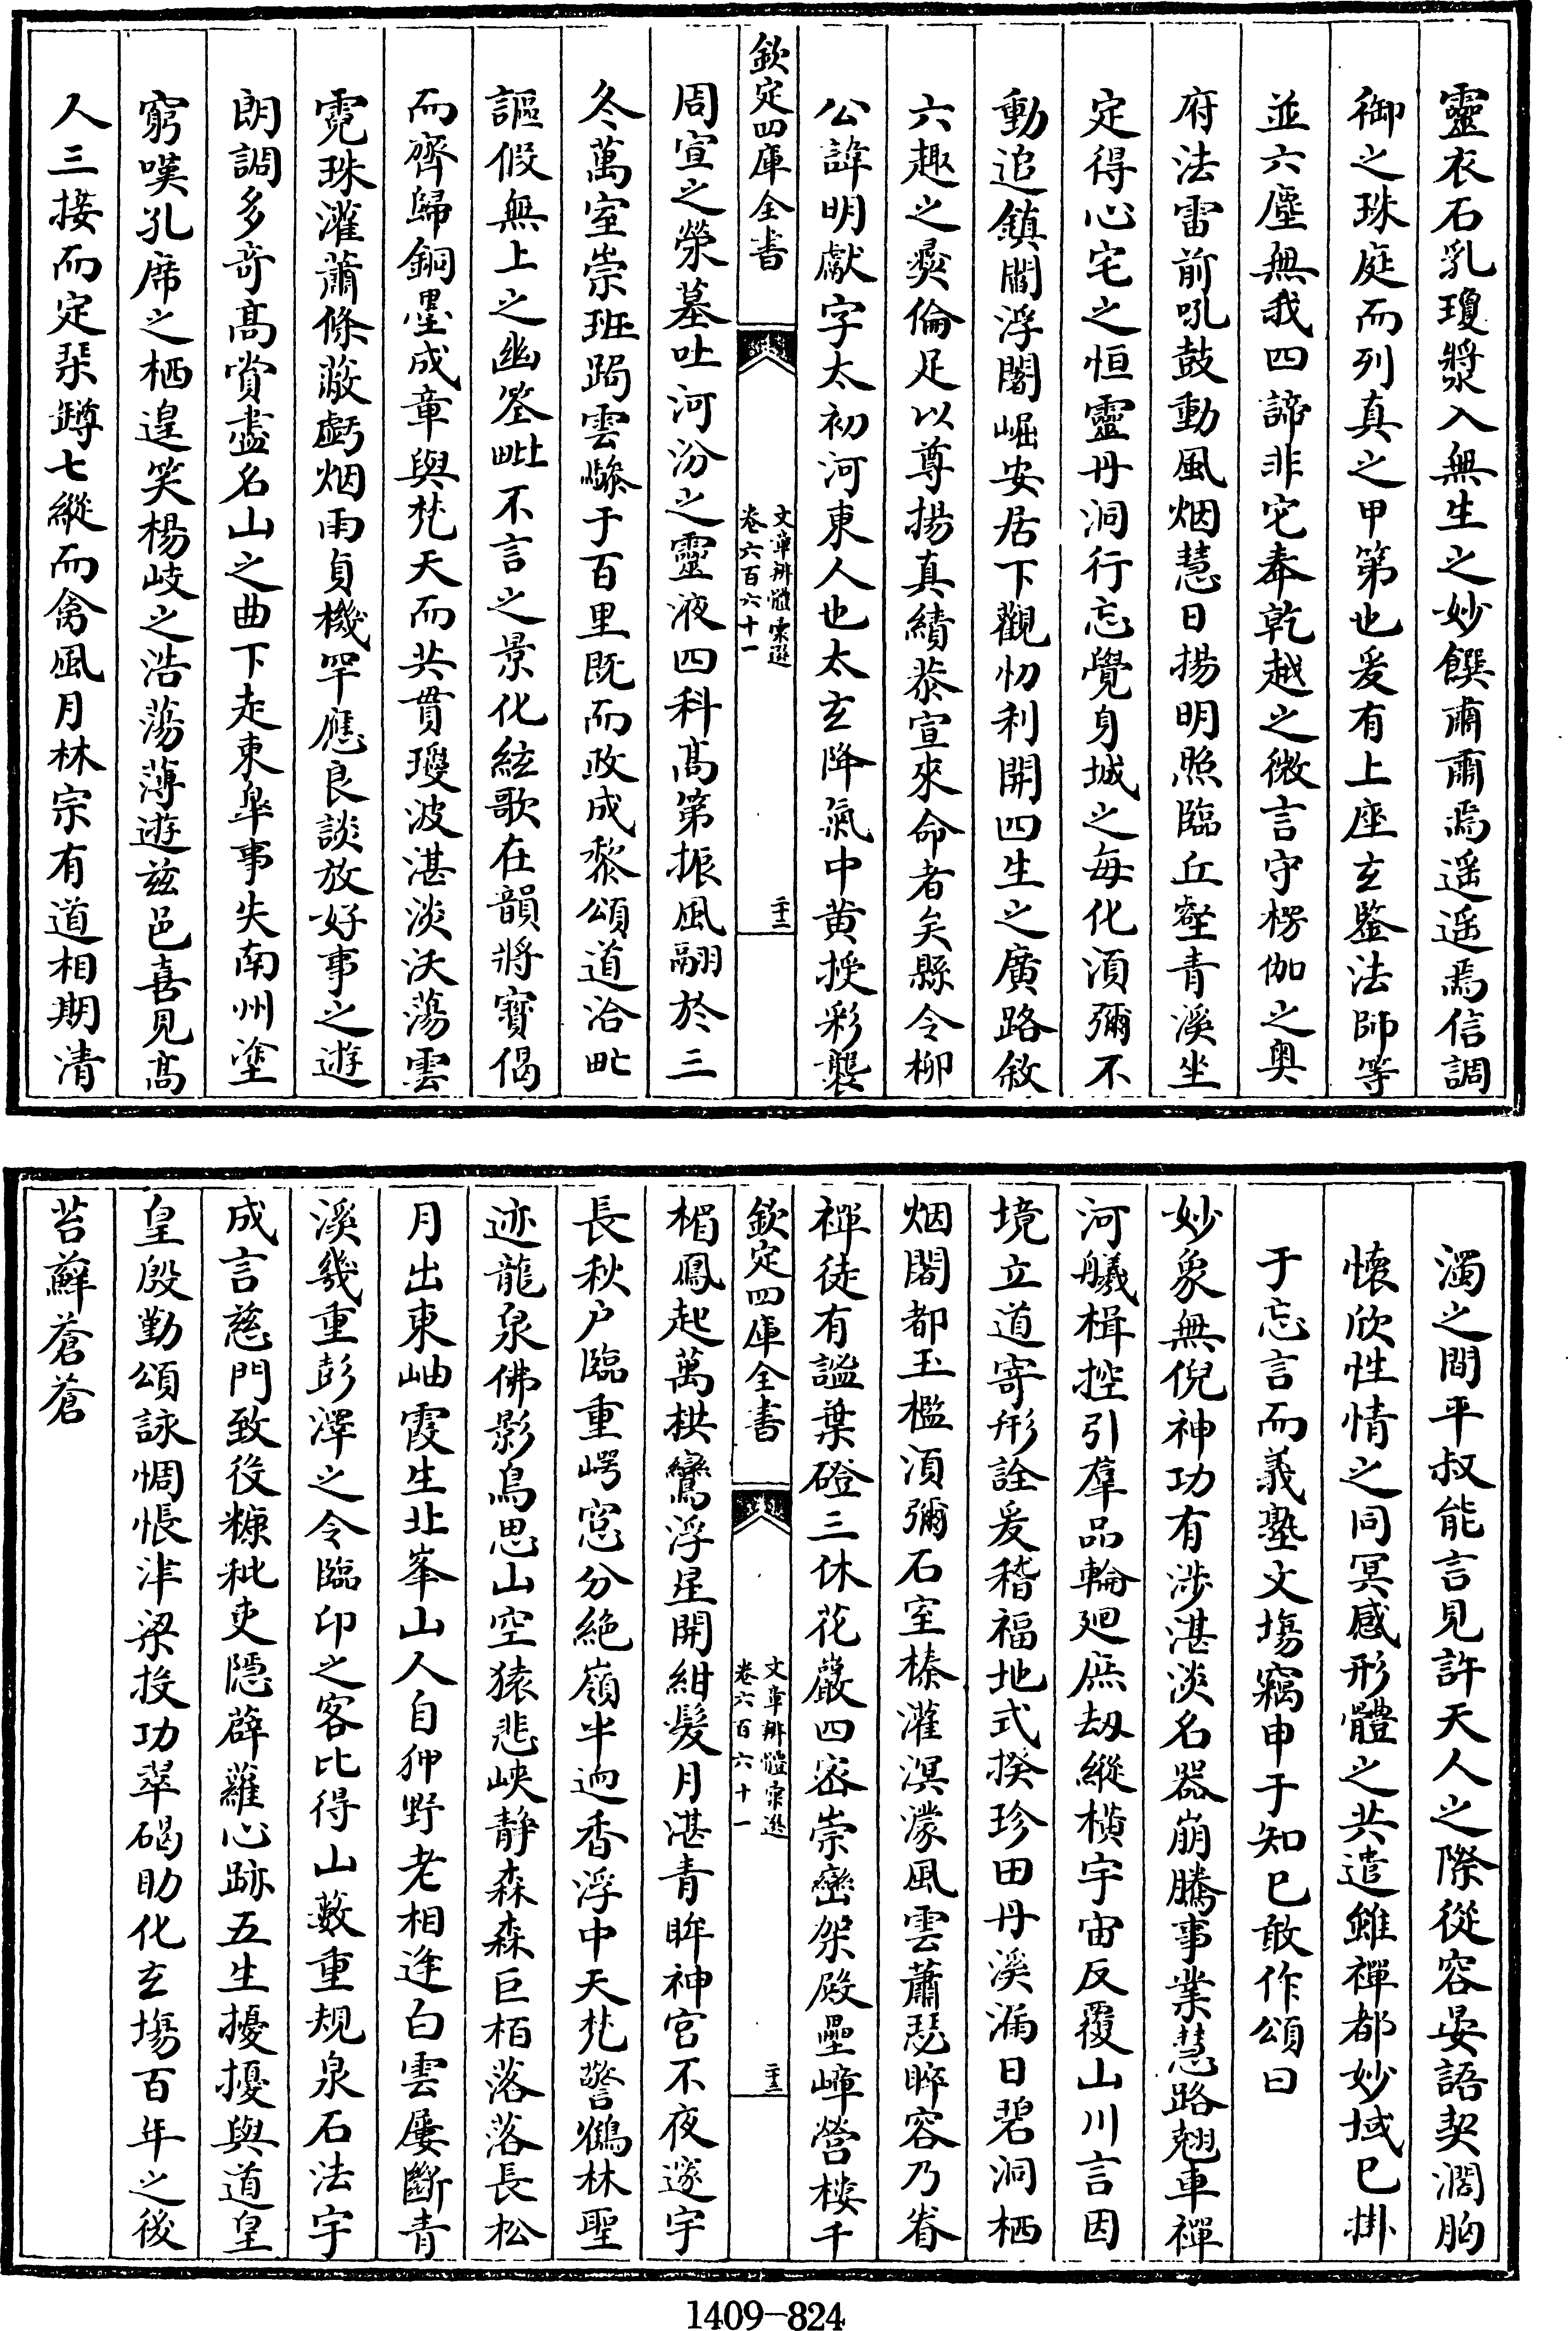 靈衣石乳瓊漿入無生之妙饌肅肅焉遥遥焉信調
御之珠庭而列真之甲第也爰有上座玄鑒法師等
並六塵無我四諦非它奉乾越之微言守楞伽之奥
府法雷前吼鼓動風烟慧日揚明照臨丘壑青溪坐
定得心宅之恒靈丹洞行忘覺身城之每化湏彌不
動追鎮閻浮闍崛安居下觀忉利開四生之廣路敘
六趣之彛倫足以尊揚真績恭宣來命者矣縣令柳
公諱明獻字太初河東人也太玄降氣中黄授彩襲
欽定四庫全書
文章辨體彚選
卷六百六十一
二十二
周宣之榮墓吐河汾之靈液四科髙第振風翮於三
冬萬室崇班跼雲驂于百里既而政成黎頌道洽甿
謳假無上之幽筌毗不言之景化絃歌在韻將寳偈
而齊歸銅墨成章與梵天而共貫瓊波湛淡沃蕩雲
霓珠灌蕭條蔽虧烟雨貞機罕應良談放好事之遊
朗調多竒髙賞盡名山之曲下走東臯事失南州塗
窮嘆孔席之栖遑笑楊岐之浩蕩薄遊兹邑喜見髙
人三接而定琹罇七縱而禽風月林宗有道相期清
濁之間平叔能言見許天人之際從容晏語契濶胸
懷欣性情之同冥感形體之共遣雖禪都妙域巳掛
于忘言而義塾文塲竊申于知巳敢作頌曰
妙象無倪神功有涉湛淡名器崩騰事業慧路翹車禪
河艤楫控引羣品輪廻庶刼縱横宇宙反覆山川言因
境立道寄形詮爰稽福地式揆珍田丹溪漏日碧洞栖
烟闍都玉檻湏彌石室榛灌溟濛風雲蕭瑟睟容乃眷
禪徒有謐葉磴三休花巖四宻崇巒架殿壘嶂營樓千
欽定四庫全書
文章辨體彚選
卷六百六十一
二十三
楣鳳起萬栱鸞浮星開紺髮月湛青眸神宫不夜邃宇
長秋户臨重崿窓分絶嶺半迥香浮中天梵警鶴林聖
迹龍泉佛影鳥思山空猿悲峽静森森巨栢落落長松
月出東岫霞生北峯山人自狎野老相逢白雲屢斷青
溪幾重彭澤之令臨卭之客比得山藪重規泉石法宇
成言慈門致役糠秕吏隱薜蘿心跡五生擾擾與道皇
皇殷勤頌詠惆悵津梁投功翠碣助化玄塲百年之後
苔蘚蒼蒼
1409-824